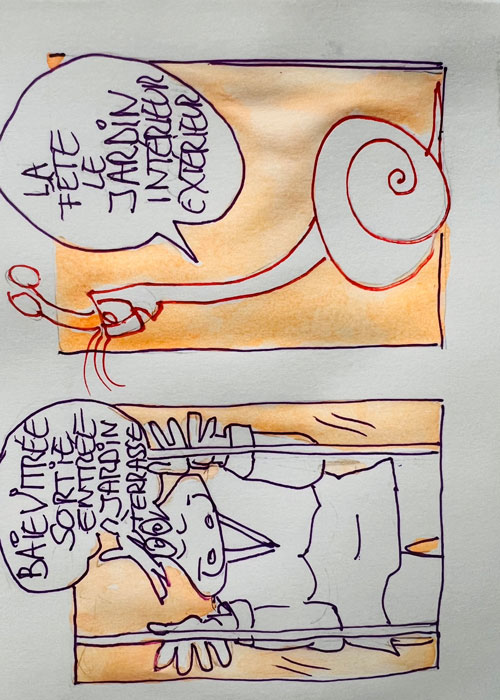 BAIE VITRÉE
SORTIE
ENTRÉE
JARDIN
TERRASSE
LA
FETE
LE
JARDIN
INTERIEUR
EXTERIEUR